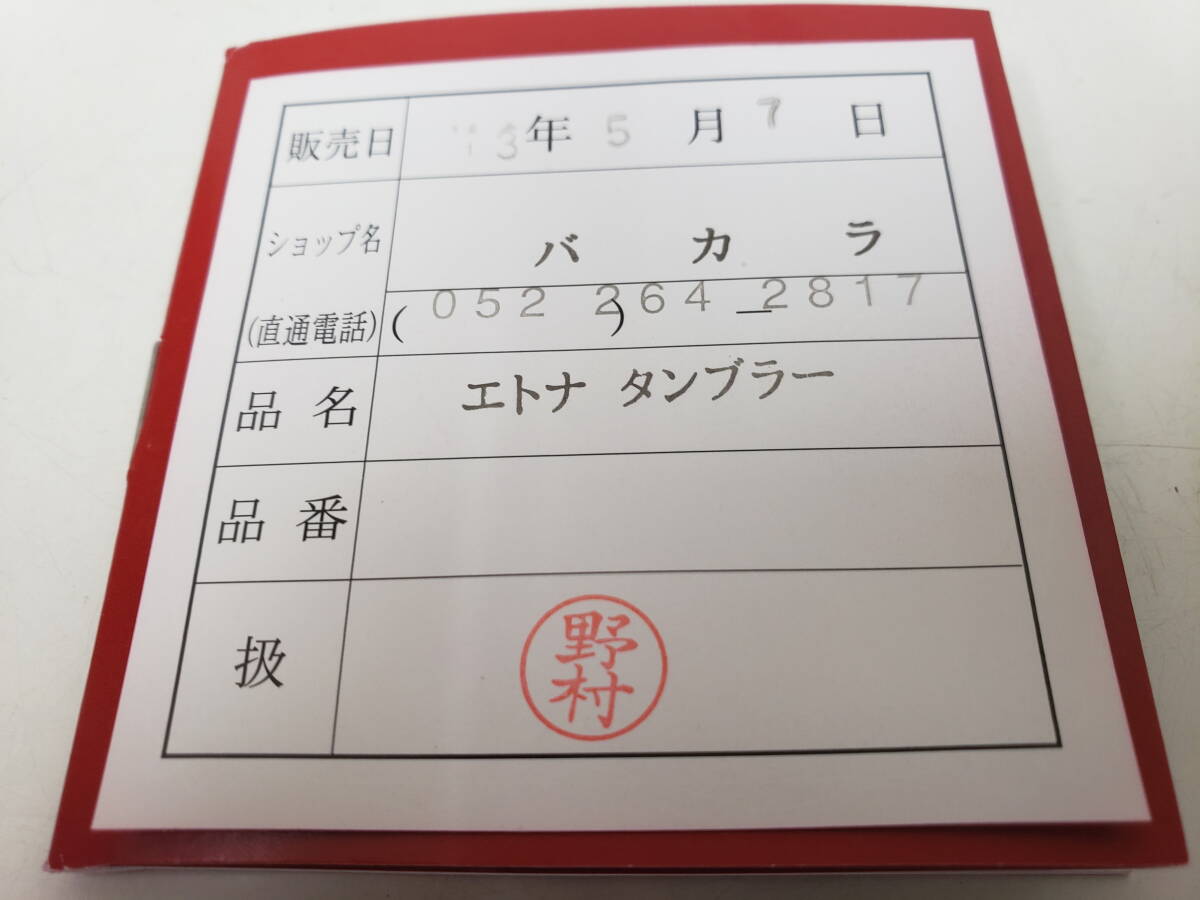 販売日 '13年 5 月 7 日
ショップ名 バカラ
(直通電話) (052 )264-2817
品名 エトナ タンブラー
品番
扱 野村